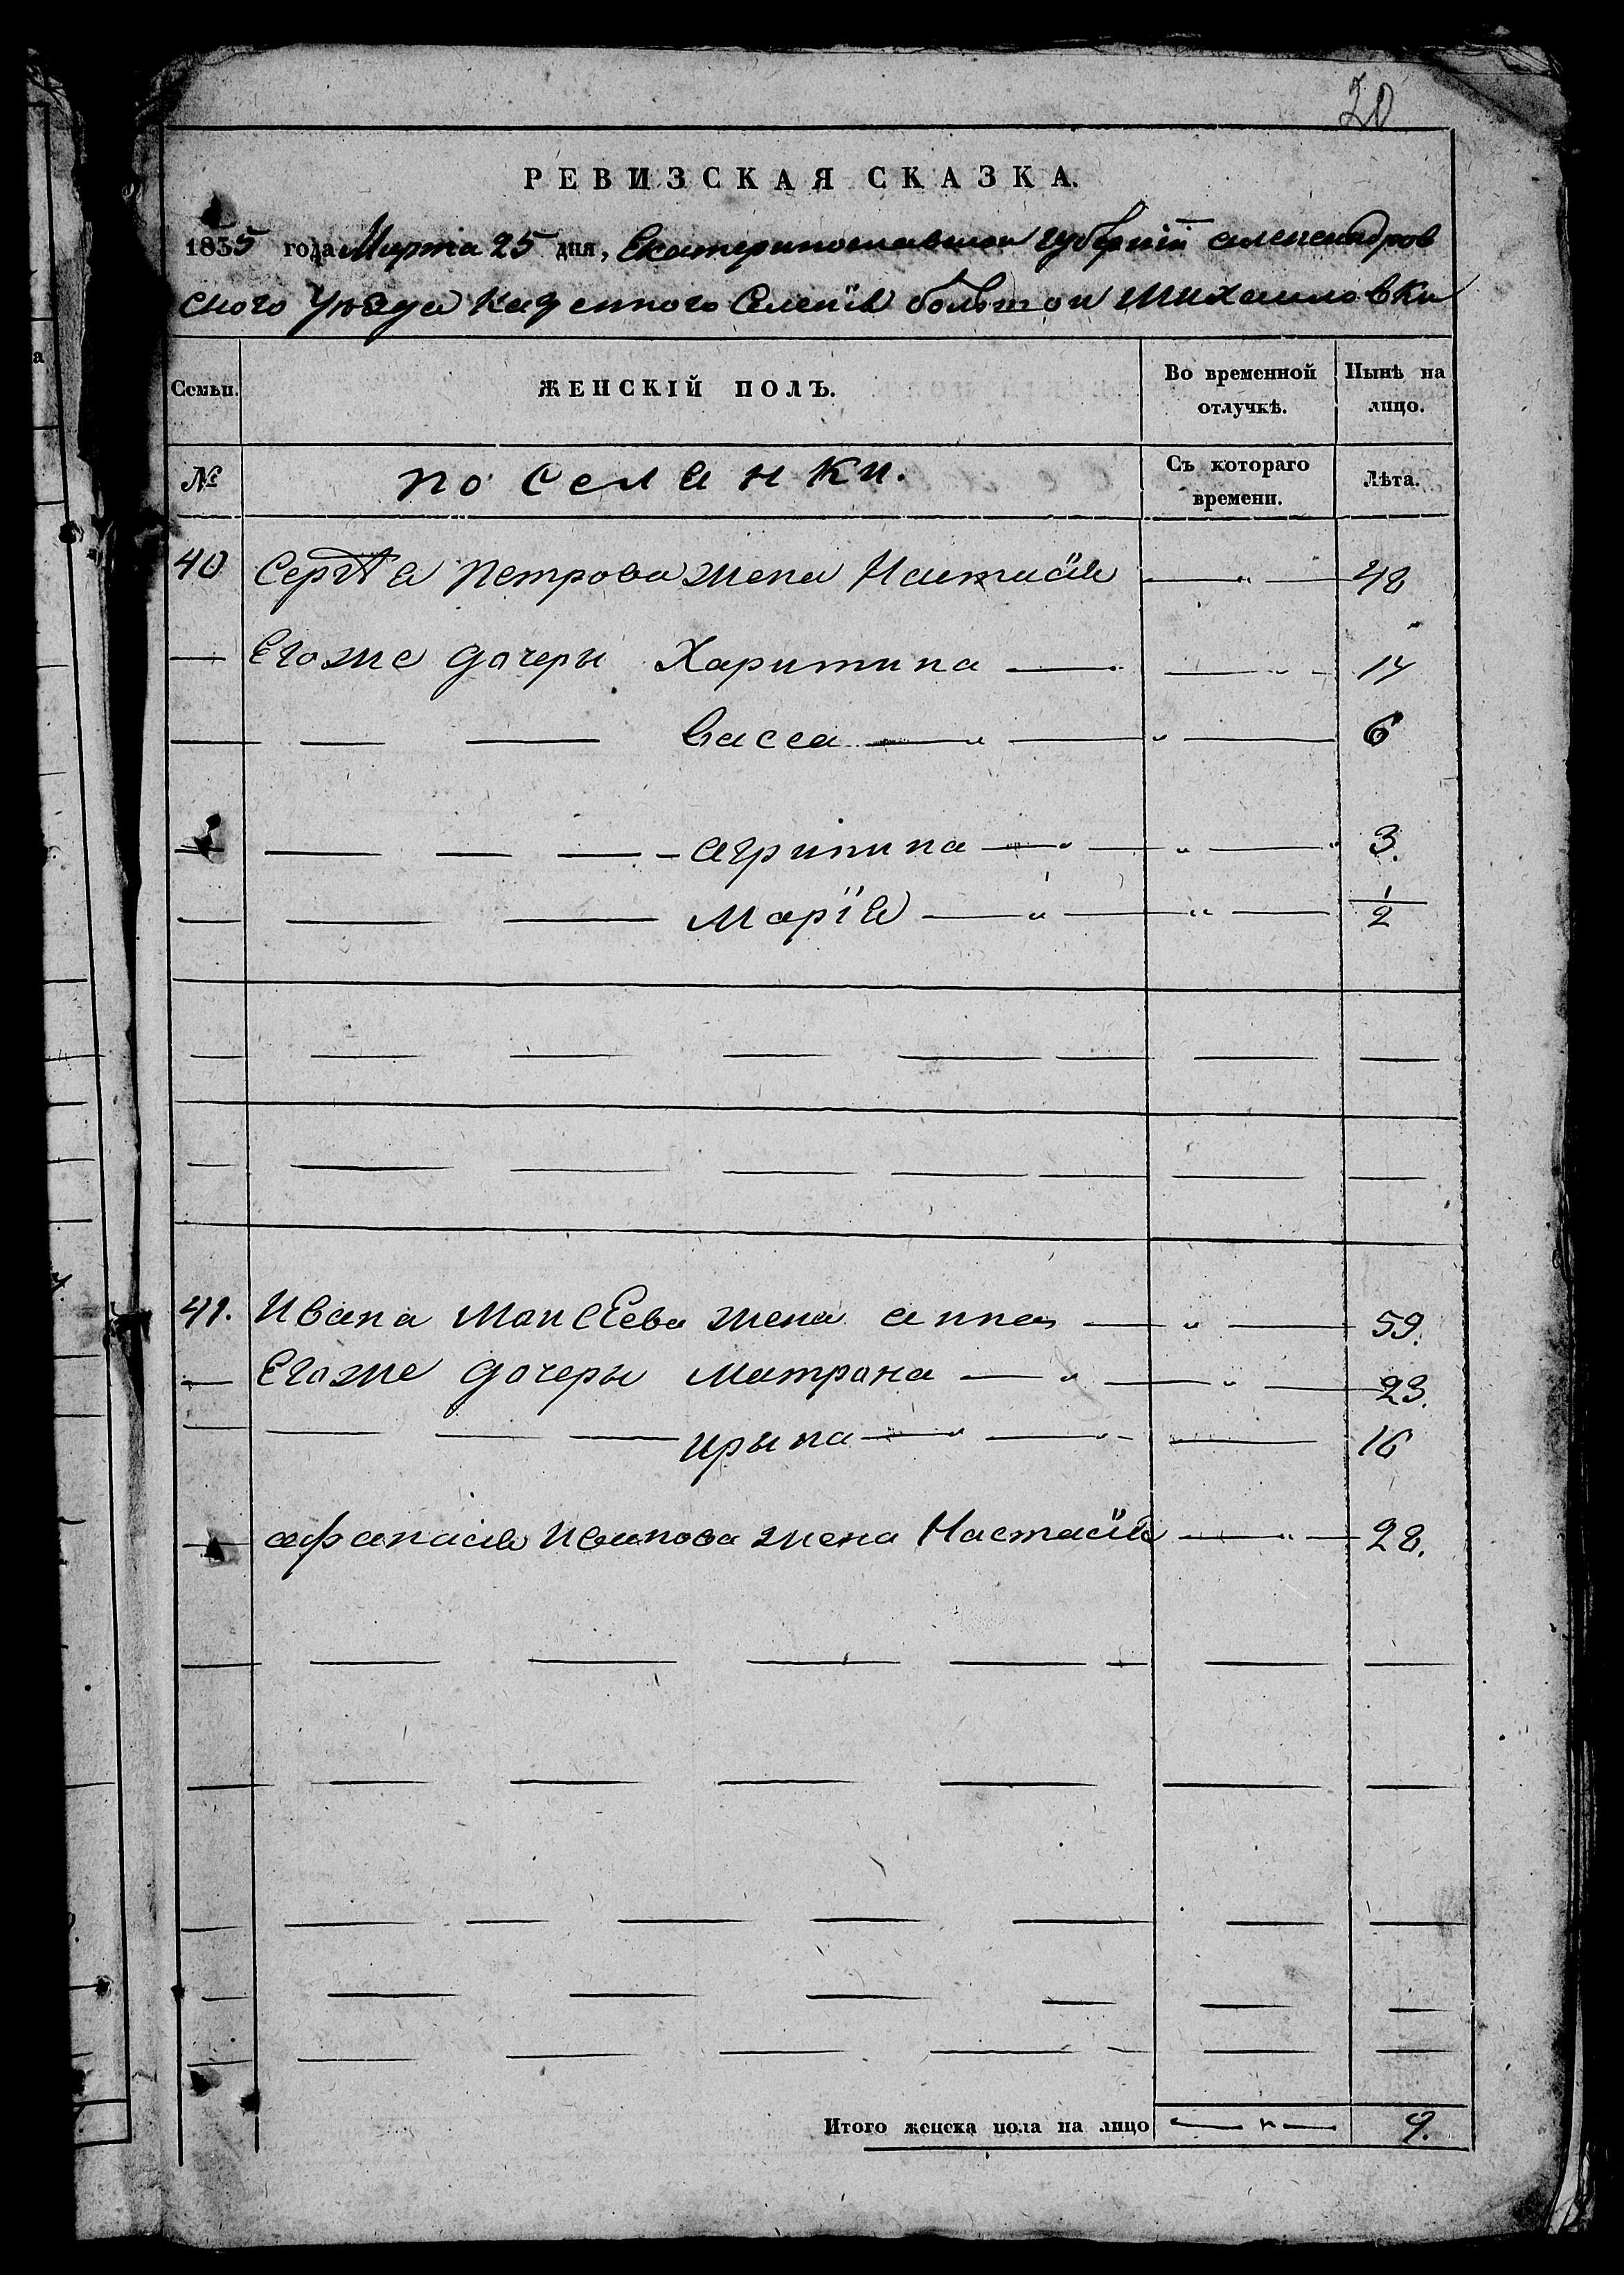 20
РЕВИЗСКАЯ СКАЗКА.
1835 года Марта 25 дня, Екатеринославской губернїи александров
ского уѣзда казенного Селенїя большой Михаиловки
Семьи. ЖЕНСКІЙ ПОЛЪ. Во временной отлучкѣ. Нынѣ на лицо.
№ поселянки. Съ котораго времени. Лѣта.
40 Сергѣя Петрова жена Настасїя — " — 48
— Егоже дочеры Харитина — — " — 14
— — — Васса — " — " — 6
— — — — агрипина — " — " — 3.
— — — Марїя — " — " — 1/2
— — — — — — — —
— — — — — — — —
41. Ивана Моисѣева жена анна — " — 59.
— Егоже дочеры Матрона — " — " — 23.
— — — — ирына — " — " — — 16
— афанасїя Иванова жена Настасїя — " — 28.
— — — — — — — —
— — — — — — —
— — — — — — — —
— — — — — — —
— — — — — — — —
Итого женска пола на лицо — " — 9.
а